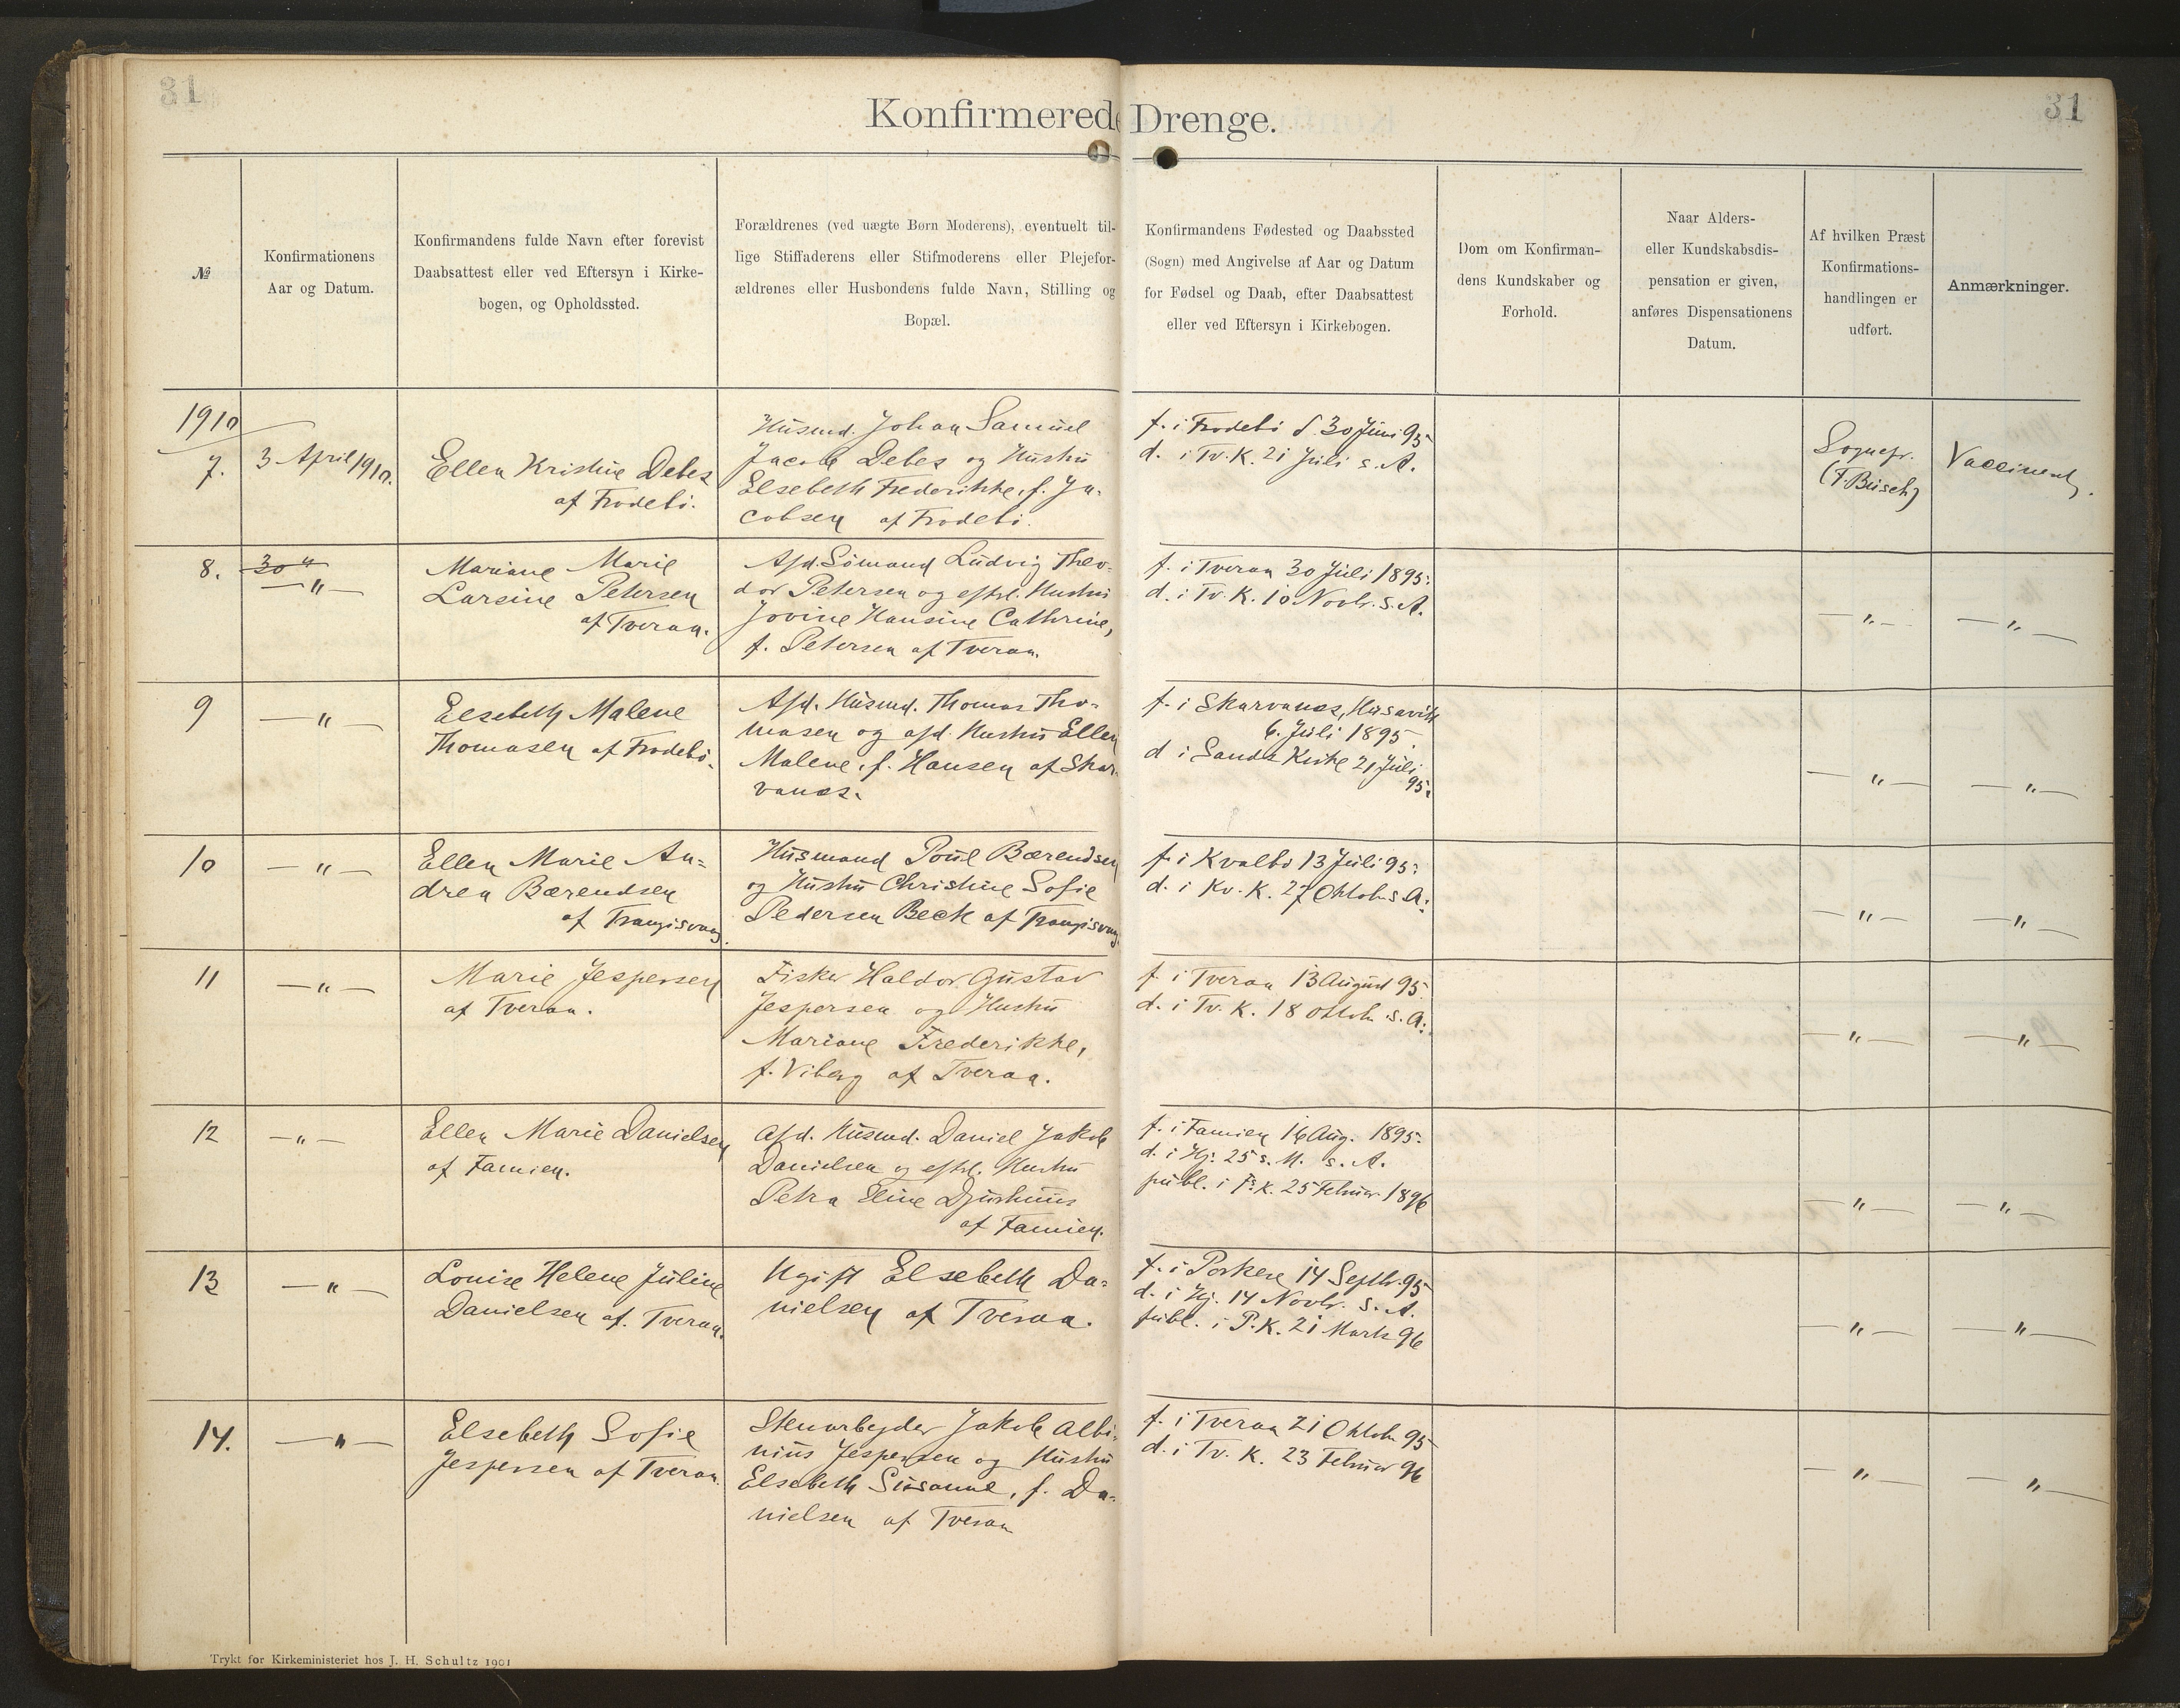 31
31
Konfirmerede Drenge.
№
Konfirmationens
Aar og Datum.
Konfirmandens fulde Navn efter forevist
Daabsattest eller ved Eftersyn i Kirke-
bogen, og Opholdssted.
Forældrenes (ved uægte Børn Moderens), eventuelt til-
lige Stiffaderens eller Stifmoderens eller Plejefor-
ældrenes eller Husbondens fulde Navn, Stilling og
Bopæl.
Konfirmandens Fødested og Daabssted
(Sogn) med Angivelse af Aar og Datum
for Fødsel og Daab, efter Daabsattest
eller ved Eftersyn i Kirkebogen.
Dom om Konfirman-
dens Kundskaber og
Forhold.
Naar Alders-
eller Kundskabsdis-
pensation er given,
anføres Dispensationens
Datum.
Af hvilken Præst
Konfirmations-
handlingen er
udført.
Anmærkninger.
1910
7.
3 April 1910.
Ellen Kristine Debes
af Frodebö.
Husmd. Johan Samuel
Jacob Debes og Hustru
Elsebeth Frederikke, f. Ja-
cobsen af Frodebö.
f. i Frodebö d. 30 Juni 95
d. i Tv. K. 21 Juli s. A.
Sognepr.
(F. Busch)
Vaccineret.
8.
— " —
Mariane Marie
Larsine Petersen
af Tveraa.
Afd. Sömand Ludvig Theo-
dor Petersen og eftrl. Hustru
Jovine Hansine Cathrine,
f. Petersen af Tveraa.
f. i Tveraa 30 Juli 1895.
d. i Tv. K. 10 Novbr. s. A.
— " —
— " —
9
— " —
Elsebeth Malene
Thomasen af Frodebö.
Afd. Husmd. Thomas Tho-
masen og afd. Hustru Ellen
Malene, f. Hansen af Skar-
vanæs.
f. i Skarvanæs, Husavik
6. Juli 1895.
d i Sands Kirke 21 Juli
95.
— " —
— " —
10
— " —
Ellen Marie An-
drea Bærendsen
af Trangisvaag.
Husmand Poul Bærendsen
og Hustru Christine Sofie
Pedersen Beck af Trangisvaag.
f. i Kvalbö 13 Juli 95.
d. i Kv. K. 27 Oktob. s. A.
— " —
— " —
11
— " —
Marie Jespersen
af Tveraa.
Fisker Haldor Gustav
Jespersen og Hustru
Mariane Frederikke,
f. Viberg af Tveraa.
f. i Tveraa 13 August 95.
d. i Tv. K. 18 Oktob. s. A.
— " —
— " —
12
— " —
Ellen Marie Danielsen
af Famien.
Afd. Husmd. Daniel Jakob
Danielsen og eftrl. Hustru
Petra Eline Djurhuus
af Famien.
f. i Famien 16 Aug. 1895.
d. i Hj. 25 s. M. s. A.
publ. i F. K. 25 Februar 1896
— " —
— " —
13
— " —
Louise Helene Juline
Danielsen af Tveraa.
Ugift Elsebeth Da-
nielsen af Tveraa.
f. i Porkere 14 Septbr. 95
d. i Hj. 14 Novbr. s. A.
publ. i P. K. 21 Marts 96
— " —
— " —
14.
— " —
Elsebeth Sofie
Jespersen af Tveraa.
Stenarbejder Jakob Albi-
nius Jespersen og Hustru
Elsebeth Susanne, f. Da-
nielsen af Tveraa
f. i Tveraa 21 Oktob. 95
d. i Tv. K. 23 Februar 96
— " —
— " —
Trykt for Kirkeministeriet hos J. H. Schultz 1901